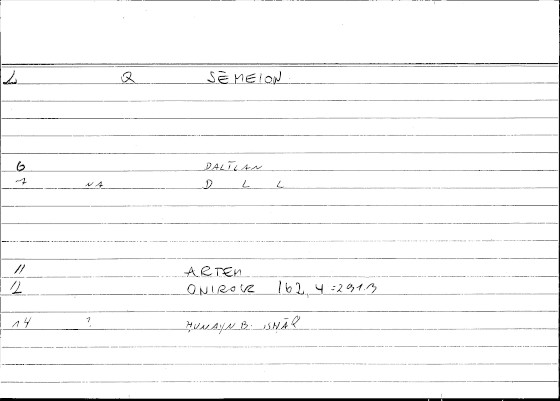 2 Q SĒMEION
6 DALĪLAN
7 NA D L L
11 ARTEM
12 ONIROCR 162, 4 = 291.13
14 ? ḤUNAYN B. ISḤĀQ